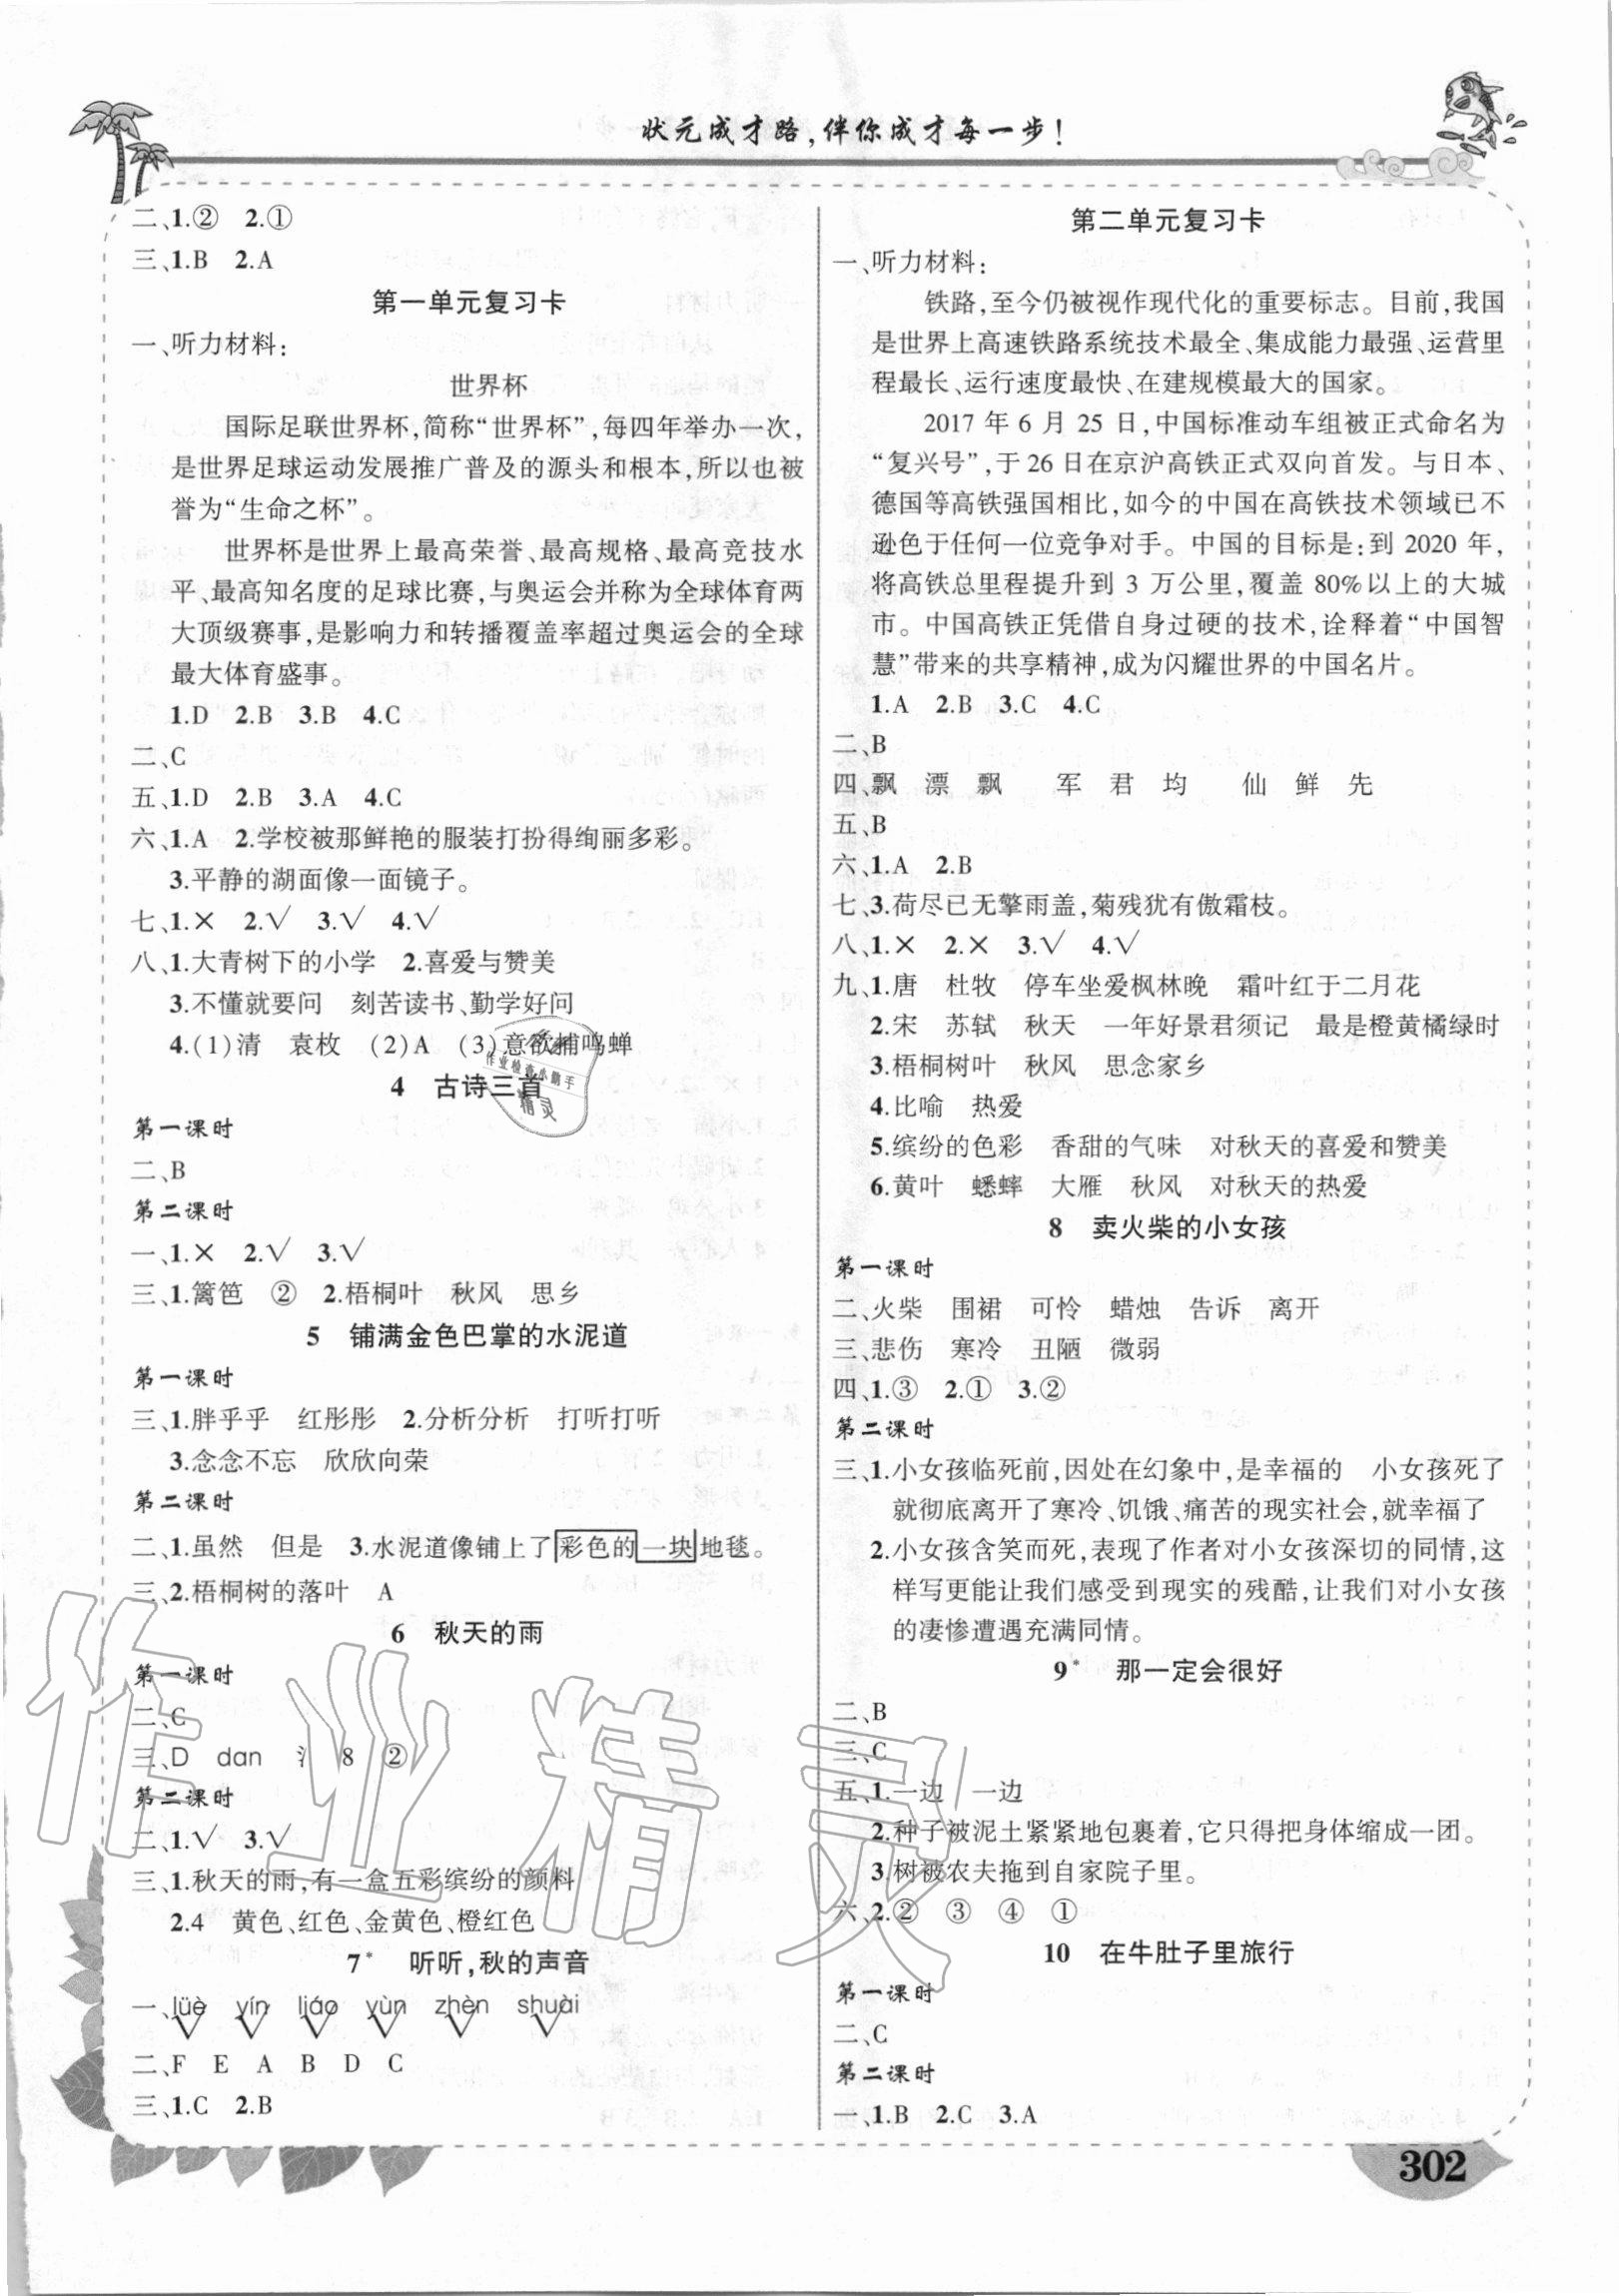 状元成才路,伴你成才每一步!
二、1.② 2.①
三、1.B 2.A
第一单元复习卡
一、听力材料:
世界杯
国际足联世界杯,简称“世界杯”,每四年举办一次,
是世界足球运动发展推广普及的源头和根本,所以也被
誉为“生命之杯”。
世界杯是世界上最高荣誉、最高规格、最高竞技水
平、最高知名度的足球比赛,与奥运会并称为全球体育两
大顶级赛事,是影响力和转播覆盖率超过奥运会的全球
最大体育盛事。
1.D 2.B 3.B 4.C
二、C
五、1.D 2.B 3.A 4.C
六、1.A 2.学校被那鲜艳的服装打扮得绚丽多彩。
3.平静的湖面像一面镜子。
七、1.× 2.√ 3.√ 4.√
八、1.大青树下的小学 2.喜爱与赞美
3.不懂就要问 刻苦读书、勤学好问
4.(1)清 袁枚 (2)A (3)意欲捕鸣蝉
4 古诗三首
第一课时
二、B
第二课时
一、1.× 2.√ 3.√
三、1.篱笆 ② 2.梧桐叶 秋风 思乡
5 铺满金色巴掌的水泥道
第一课时
三、1.胖乎乎 红彤彤 2.分析分析 打听打听
3.念念不忘 欣欣向荣
第二课时
二、1.虽然 但是 3.水泥道像铺上了彩色的一块地毯。
三、2.梧桐树的落叶 A
6 秋天的雨
第一课时
二、C
三、D dan 8 ②
第二课时
二、1.√ 3.√
三、1.秋天的雨,有一盒五彩缤纷的颜料
2.4 黄色、红色、金黄色、橙红色
7* 听听,秋的声音
一、lüè yín liáo yùn zhèn shuài
二、F E A B D C
三、1.C 2.B
第二单元复习卡
一、听力材料:
铁路,至今仍被视作现代化的重要标志。目前,我国
是世界上高速铁路系统技术最全、集成能力最强、运营里
程最长、运行速度最快、在建规模最大的国家。
2017 年 6 月 25 日,中国标准动车组被正式命名为
“复兴号”,于 26 日在京沪高铁正式双向首发。与日本、
德国等高铁强国相比,如今的中国在高铁技术领域已不
逊色于任何一位竞争对手。中国的目标是:到 2020 年,
将高铁总里程提升到 3 万公里,覆盖 80%以上的大城
市。中国高铁正凭借自身过硬的技术,诠释着“中国智
慧”带来的共享精神,成为闪耀世界的中国名片。
1.A 2.B 3.C 4.C
二、B
四、飘 漂 飘 军 君 均 仙 鲜 先
五、B
六、1.A 2.B
七、3.荷尽已无擎雨盖,菊残犹有傲霜枝。
八、1.× 2.× 3.√ 4.√
九、1.唐 杜牧 停车坐爱枫林晚 霜叶红于二月花
2.宋 苏轼 秋天 一年好景君须记 最是橙黄橘绿时
3.梧桐树叶 秋风 思念家乡
4.比喻 热爱
5.缤纷的色彩 香甜的气味 对秋天的喜爱和赞美
6.黄叶 蟋蟀 大雁 秋风 对秋天的热爱
8 卖火柴的小女孩
第一课时
二、火柴 围裙 可怜 蜡烛 告诉 离开
三、悲伤 寒冷 丑陋 微弱
四、1.③ 2.① 3.②
第二课时
三、1.小女孩临死前,因处在幻象中,是幸福的 小女孩死了
就彻底离开了寒冷、饥饿、痛苦的现实社会,就幸福了
2.小女孩含笑而死,表现了作者对小女孩深切的同情,这
样写更能让我们感受到现实的残酷,让我们对小女孩
的凄惨遭遇充满同情。
9* 那一定会很好
二、B
三、C
五、1.一边 一边
2.种子被泥土紧紧地包裹着,它只得把身体缩成一团。
3.树被农夫拖到自家院子里。
六、2.② ③ ④ ①
10 在牛肚子里旅行
第一课时
二、C
第二课时
一、1.B 2.C 3.A
302
作业检查小能手
精灵
作业精灵